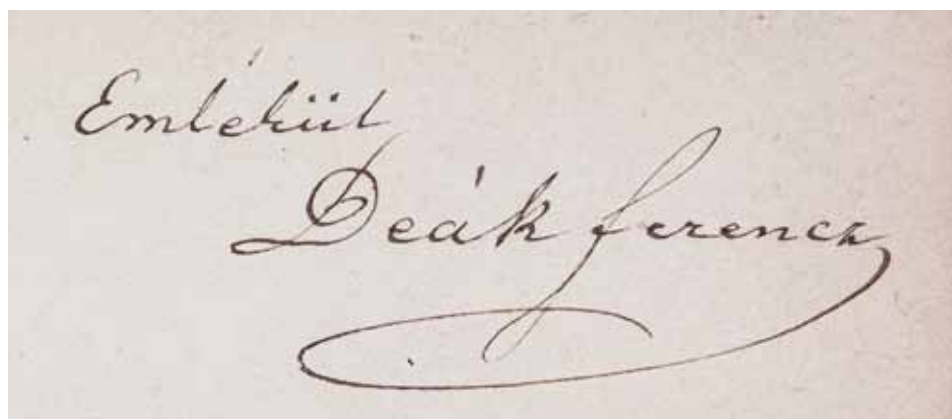 Emlékül
Deák ferencz